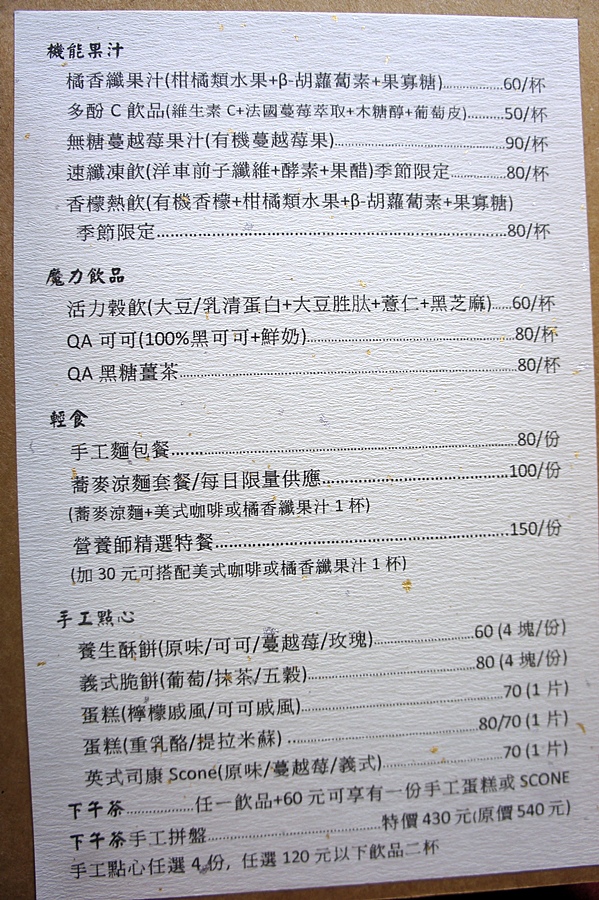 機能果汁
橘香纖果汁(柑橘類水果+β-胡蘿蔔素+果寡糖)....................60/杯
多酚 C 飲品(維生素 C+法國蔓莓萃取+木糖醇+葡萄皮)..........50/杯
無糖蔓越莓果汁(有機蔓越莓果)..........................................90/杯
速纖凍飲(洋車前子纖維+酵素+果醋)季節限定................80/杯
香檬熱飲(有機香檬+柑橘類水果+β-胡蘿蔔素+果寡糖)
季節限定..................................................................80/杯
魔力飲品
活力穀飲(大豆/乳清蛋白+大豆胜肽+薏仁+黑芝麻)......60/杯
QA 可可(100%黑可可+鮮奶)..........................................80/杯
QA 黑糖薑茶..................................................................80/杯
輕食
手工麵包餐..................................................................80/份
蕎麥涼麵套餐/每日限量供應........................................100/份
(蕎麥涼麵+美式咖啡或橘香纖果汁 1 杯)
營養師精選特餐..........................................................150/份
(加 30 元可搭配美式咖啡或橘香纖果汁 1 杯)
手工點心
養生酥餅(原味/可可/蔓越莓/玫瑰)..........................60 (4 塊/份)
義式脆餅(葡萄/抹茶/五穀)........................................80 (4 塊/份)
蛋糕(檸檬戚風/可可戚風)..........................................70 (1 片)
蛋糕(重乳酪/提拉米蘇) ........................................80/70 (1 片)
英式司康 Scone(原味/蔓越莓/義式)..........................70 (1 片)
下午茶..................任一飲品+60 元可享有一份手工蛋糕或 SCONE
下午茶手工拼盤........................................特價 430 元(原價 540 元)
手工點心任選 4 份, 任選 120 元以下飲品二杯